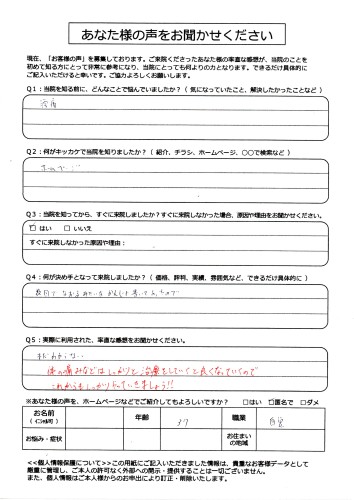 あなた様の声をお聞かせください
現在、「お客様の声」を募集しております。ご来院くださったあなた様の率直な感想が、当院のことを
初めて知る方にとって非常に参考になり、当院にとっても何よりの力となります。できるだけ具体的に
ご記入いただけると幸いです。ご協力よろしくお願いします。
Q1:当院を知る前に、どんなことで悩んでいましたか?(気になっていたこと、解決したかったことなど)
腰痛
Q2:何がキッカケで当院を知りましたか?(紹介、チラシ、ホームページ、〇〇で検索など)
ホームページ
Q3:当院を知ってから、すぐに来院しましたか?すぐに来院しなかった場合、原因や理由をお聞かせください。
☑ はい □ いいえ
すぐに来院しなかった原因や理由:
Q4:何が決め手となって来院しましたか?(価格、評判、実績、雰囲気など、できるだけ具体的に)
Q5:実際に利用されて、率直な感想をお聞かせください。
まだわからない…
体の痛みなどはしっかりと治療をしていくと良くなっていくので
これからもしっかりやっていきましょう!!
※あなた様の声を、ホームページなどでご紹介してもよろしいですか? □はい ☑匿名で □ダメ
お名前
(イニシャル可)
年齢 37 職業 自営
お悩み・症状 お住まい
の地域
<<個人情報保護について>>この用紙にご記入いただきました情報は、貴重なお客様データとして
厳重に管理し、ご本人の許可なく外部への開示・提供することは一切ございません。
また、個人情報はご本人様からのお申出により訂正・削除いたします。